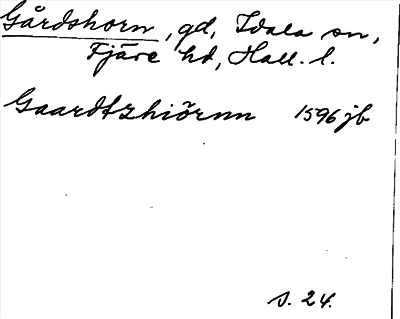 Gårdshorn, gd, Idala sn,
Fjäre hd, Hall. l.
Gaardtzhiörnn 1596 jb
s. 24.